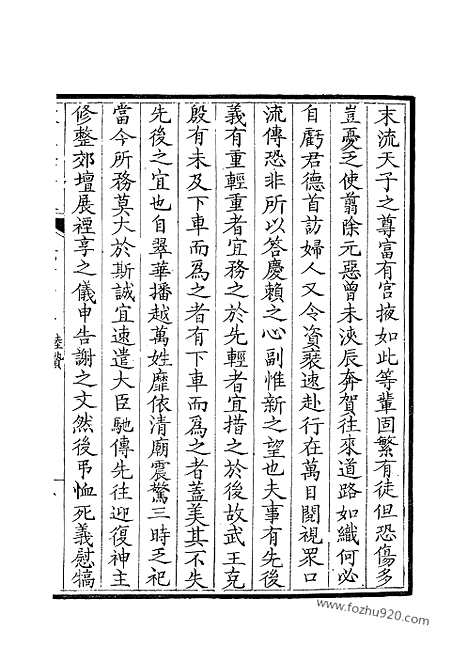 末流天子之尊富有宫掖如此等輩固繁有徒但恐傷多
豈憂乏使翦除元惡曾未浹辰奔賀往來道路如織何必
自虧君德首訪婦人又令資裝速赴行在萬目閱視眾口
流傳恐非所以答慶賴之心副惟新之望也夫事有先後
義有重輕重者宜務之於先輕者宜措之於後故武王克
殷有未及下車而為之者有下車而為之者蓋美其不失
先後之宜也自翠華播越萬姓靡依清廟震驚三時乏祀
當今所務莫大於斯誠宜速遣大臣馳傳先往迎復神主
修整郊壇展禋享之儀申告謝之文然後弔恤死義慰犒
陸贄
www.fozhu920.com